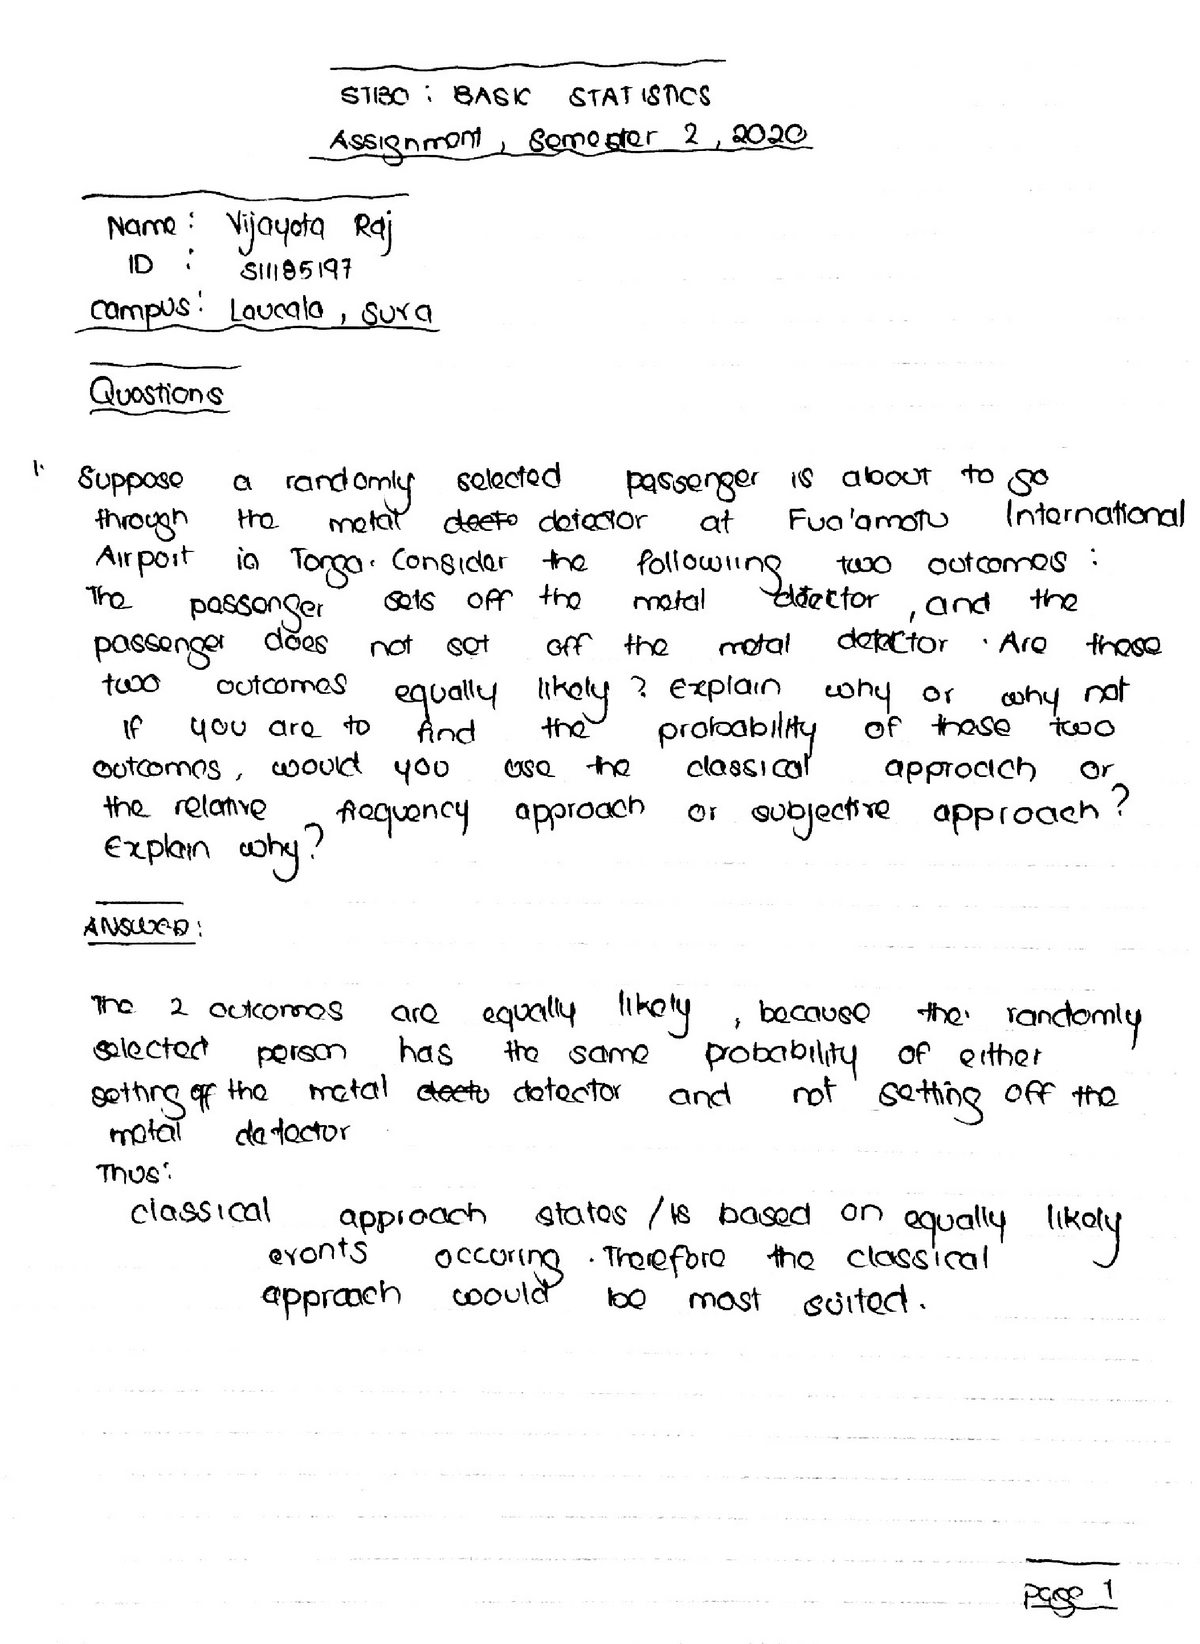 ST130 : BASIC STATISTICS
Assignment, Semester 2, 2020
Name : Vijayota Raj
ID : S11185197
Campus : Laucala, Suva
Questions
1. Suppose a randomly selected passenger is about to go
through the metal deeto detector at Fua'amotu International
Airport in Tonga. Consider the following two outcomes :
The passenger sets off the metal detector, and the
passenger does not set off the metal detector. Are these
two outcomes equally likely? Explain why or why not
If you are to find the probability of these two
outcomes, would you use the classical approach or
the relative frequency approach or subjective approach?
Explain why?
ANSWER:
The 2 outcomes are equally likely, because the randomly
selected person has the same probability of either
setting off the metal deeto detector and not setting off the
metal detector
Thus:
classical approach states / is based on equally likely
events occuring. Therefore the classical
approach would be most suited.
page 1